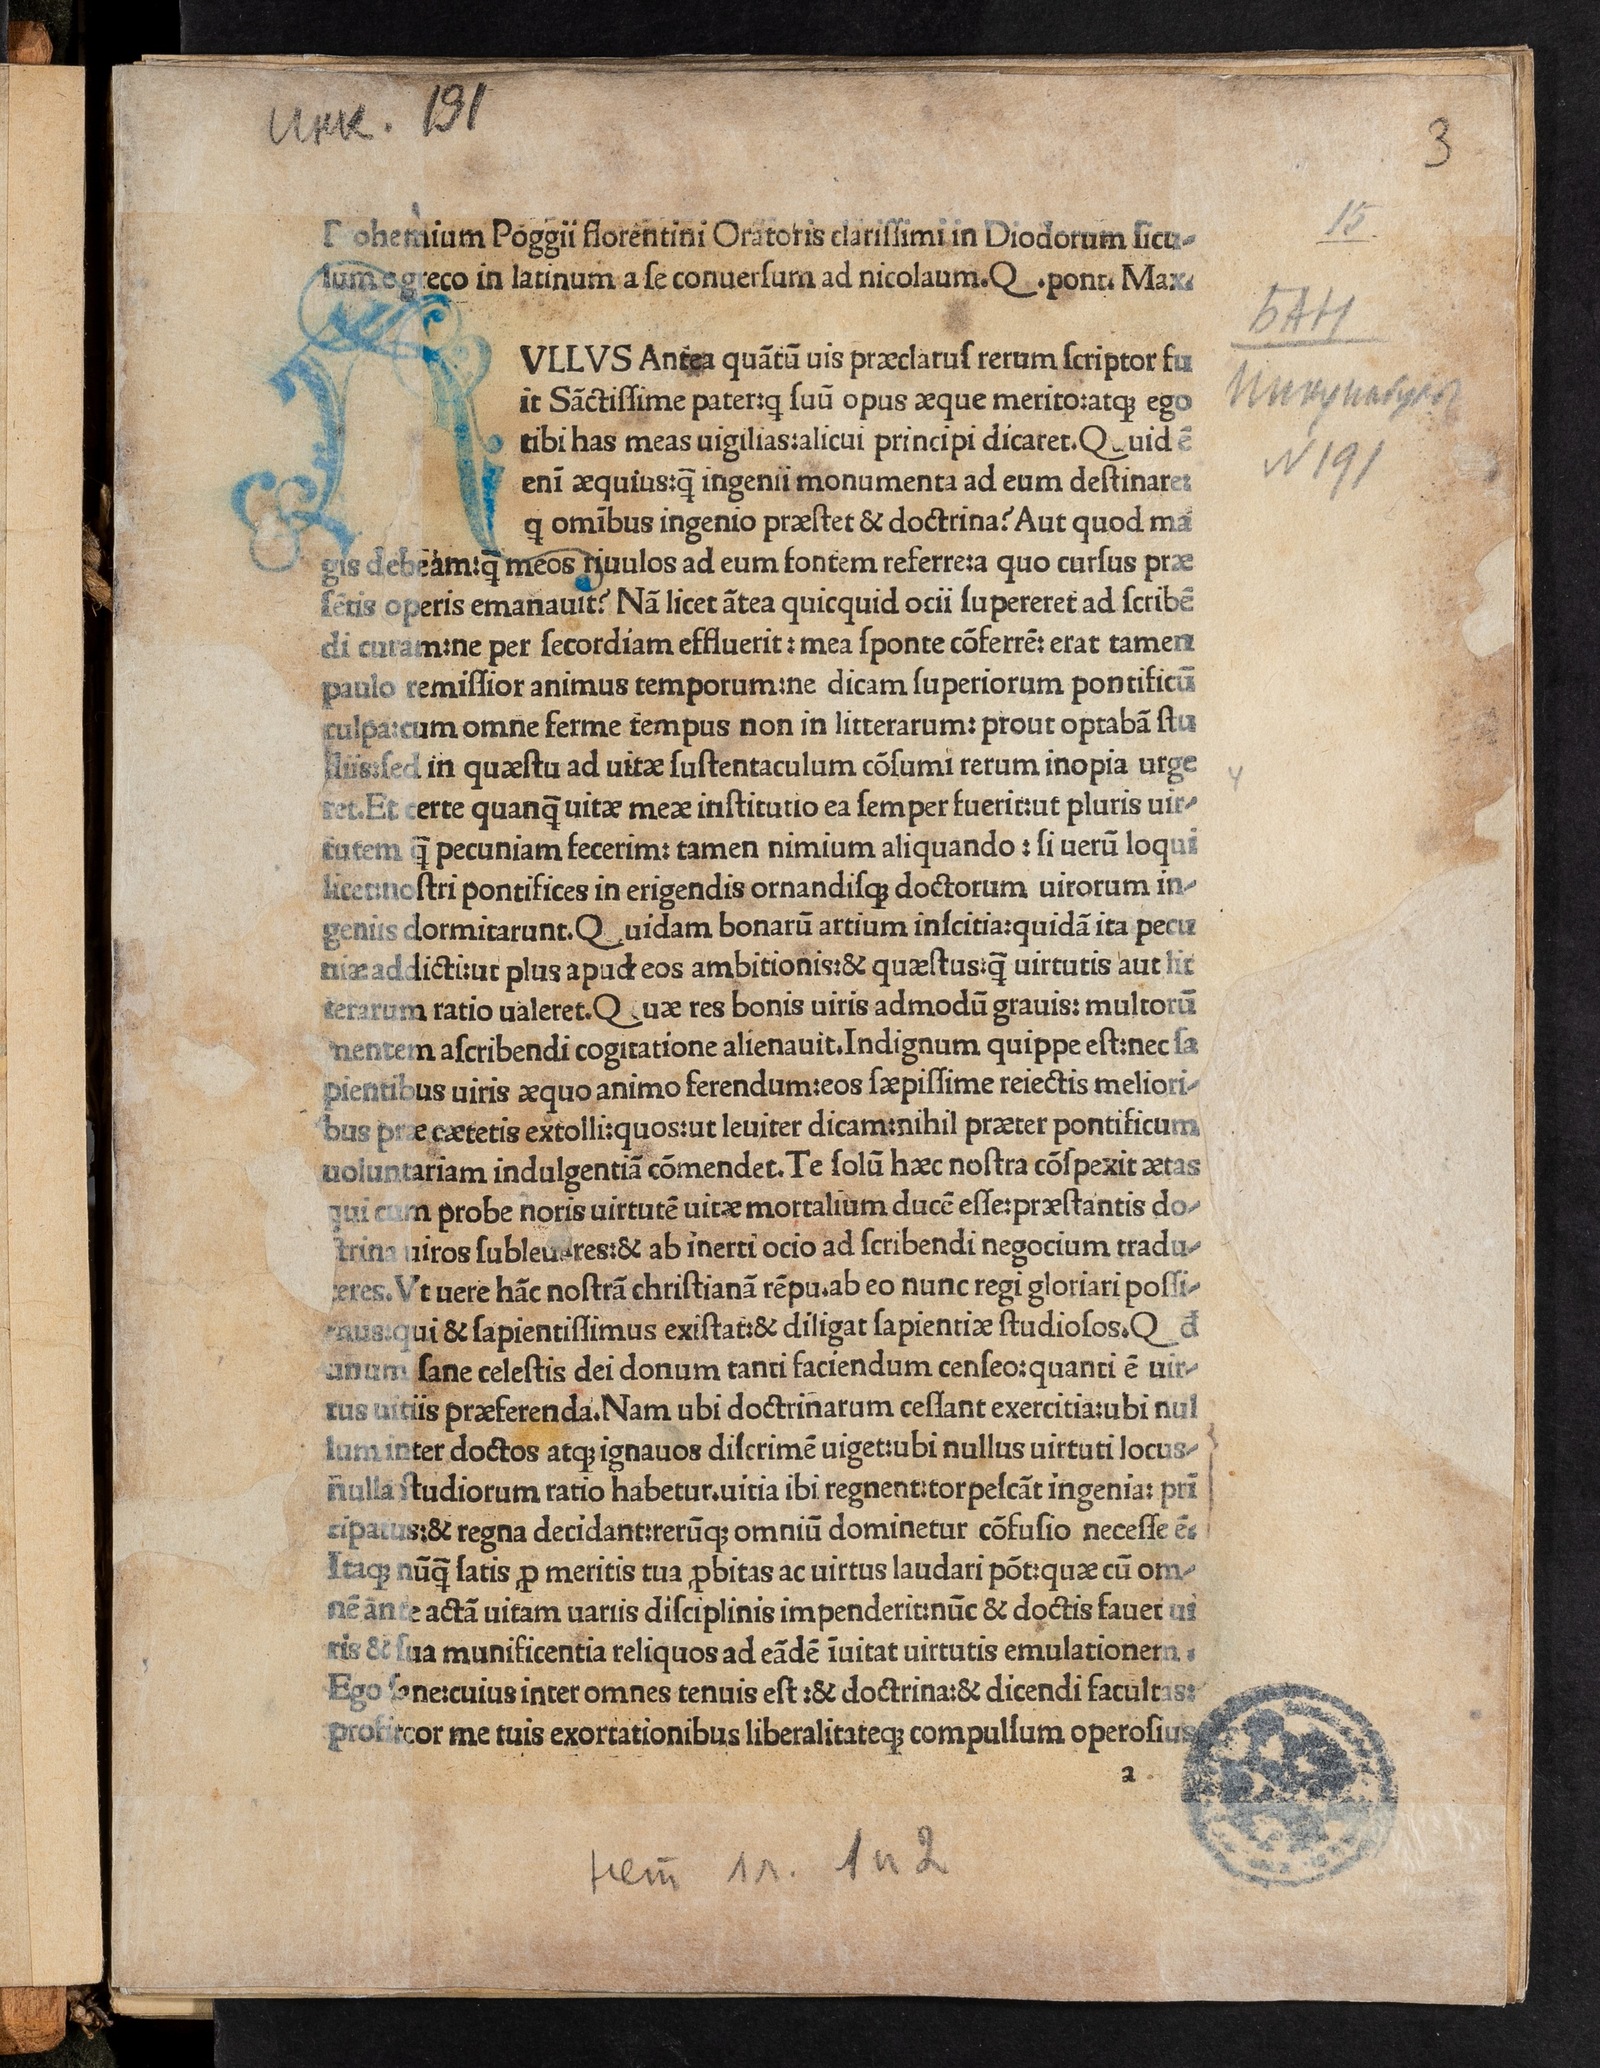 Инк. 191
3
Prohemium Poggii florentini Oratoris clariſſimi in Diodorum ſicu-
lum e greco in latinum a ſe conuerſum ad nicolaum.Q.pont. Max.
15
БАН
Инкунабул
N 191
NVLLVS Antea quãtũ uis præclaruſ rerum ſcriptor fu
it Sãctiſſime pater:q ſuũ opus æque merito:atqꝫ ego
tibi has meas uigilias:alicui principi dicaret.Quid ẽ
enĩ æquius:q̃ ingenii monumenta ad eum deſtinare:
q omĩbus ingenio præſtet & doctrina? Aut quod ma
gis debeam:q̃ meos riuulos ad eum fontem referre:a quo curſus præ
ſẽtis operis emanauit? Nã licet ãtea quicquid ocii ſupereret ad ſcribẽ
di curam:ne per ſecordiam efflueritː mea ſponte cõferrẽ: erat tamen
paulo remiſſior animus temporum:ne dicam ſuperiorum pontificũ
culpa:cum omne ferme tempus non in litterarum: prout optabã ſtu
diis:ſed in quæſtu ad uitæ ſuſtentaculum cõſumi rerum inopia urge
ret.Et certe quanq̃ uitæ meæ inſtitutio ea ſemper fuerit:ut pluris uir-
tutem q̃ pecuniam fecerim: tamen nimium aliquando : ſi uerũ loqui
licet:noſtri pontifices in erigendis ornandiſqꝫ doctorum uirorum in-
geniis dormitarunt.Quidam bonarũ artium inſcitia:quidã ita pecu
niæ addicti:ut plus apud eos ambitionis:& quæſtus:q̃ uirtutis aut lit
terarum ratio ualeret.Quæ res bonis uiris admodũ grauis: multorũ
mentem aſcribendi cogitatione alienauit.Indignum quippe eſt:nec ſa
pientibus uiris æquo animo ferendum:eos ſæpiſſime reiectis meliori-
bus præ cætetis extolli:quos:ut leuiter dicam:nihil præter pontificum
uoluntariam indulgentiã cõmendet.Te ſolũ hæc noſtra cõſpexit ætas
qui cum probe noris uirtutẽ uitæ mortalium ducẽ eſſe:præſtantis do-
ctrina uiros ſubleuares:& ab inerti ocio ad ſcribendi negocium tradu-
ceres.Vt uere hãc noſtrã chriſtianã rẽpu.ab eo nunc regi gloriari poſſi-
mus:qui & ſapientiſſimus exiſtat:& diligat ſapientiæ ſtudioſos.Q đ
unum ſane celeſtis dei donum tanti faciendum cenſeo:quanti ẽ uir-
tus uitiis præferenda.Nam ubi doctrinarum ceſſant exercitia:ubi nul
lum inter doctos atqꝫ ignauos diſcrimẽ uiget:ubi nullus uirtuti locus-
nulla ſtudiorum ratio habetur.uitia ibi regnent:torpeſcãt ingenia: pri̅
cipatus:& regna decidant:rerũqꝫ omniũ dominetur cõfuſio neceſſe ẽ:
Itaqꝫ nũq̃ ſatis ꝓ meritis tua ꝓbitas ac uirtus laudari põt:quæ cũ om-
nẽ ante actã uitam uariis diſciplinis impenderit:nũc & doctis fauet ui
ris & ſua munificentia reliquos ad eãdẽ ĩuitat uirtutis emulationem.
Ego ſane:cuius inter omnes tenuis eſt :& doctrina:& dicendi facultas:
profiteor me tuis exortationibus liberalitateqꝫ compulſum operoſius
a
нет лл. 1 и 2